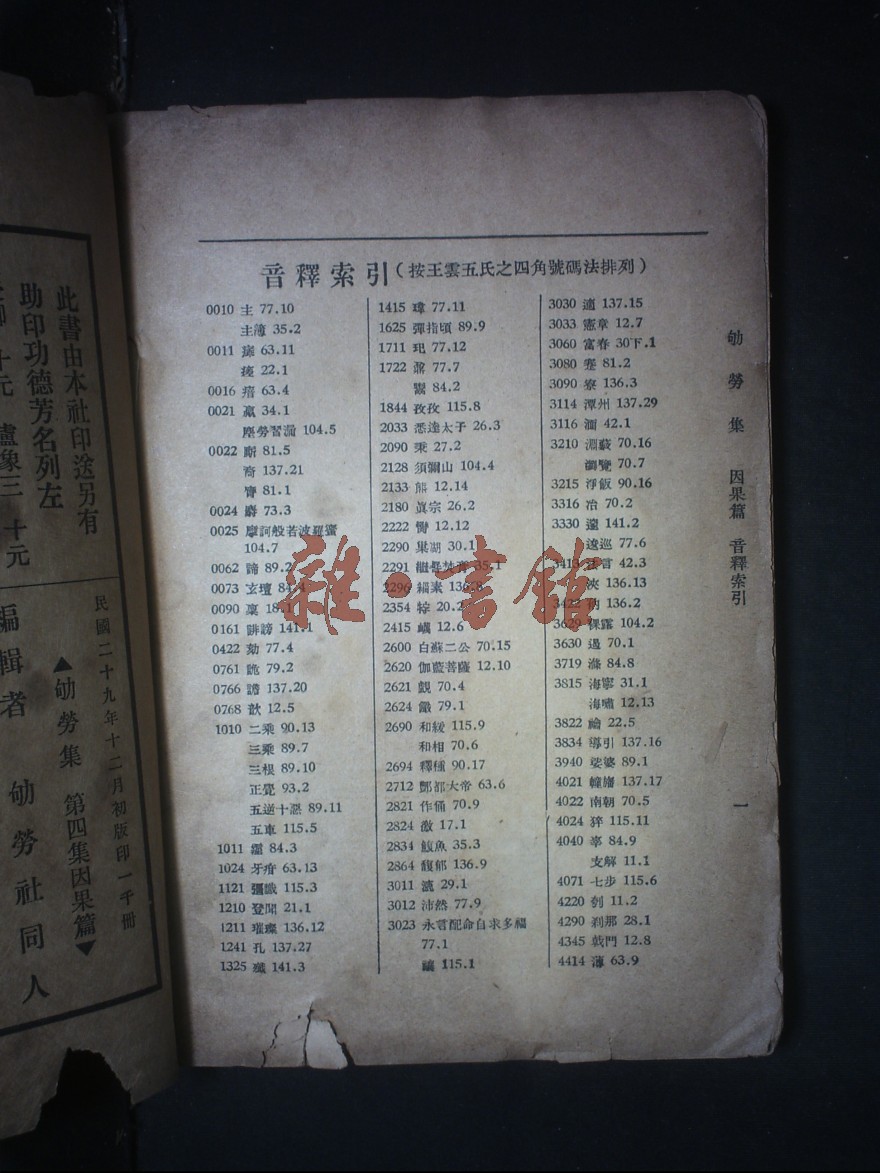 音釋索引(按王雲五氏之四角號碼法排列)
0010 主 77.10
35.2
0011 63.11
22.1
0016 瘖 63.4
0021 34.1
塵勞習漏 104.5
0022 81.5
裔 137.21
81.1
0024 73.3
0025 摩訶般若波羅蜜
104.7
0062 諦 89.2
0073 玄壇 84.4
0090 稟 18.1
0161 誹謗 141.1
0422 劾 77.4
0761 詭 79.2
0766 137.20
0768 歆 12.5
1010 二乘 90.13
三乘 89.7
三根 89.10
正覺 93.2
五逆十惡 89.11
五車 115.5
1011 84.3
1024 牙 63.13
1121 彌 115.3
1210 登聞 21.1
1211 璀璨 136.12
1241 孔 137.27
1325 殲 141.3
1415 瑋 77.11
1625 彈指頃 89.9
1711 玘 77.12
1722 鼐 77.7
84.2
1844 孜孜 115.8
2033 悉達太子 26.3
2090 秉 27.2
2128 須彌山 104.4
2133 熊 12.14
2180 眞宗 26.2
2222 12.12
2290 巢湖 30.1
2291 35.1
2296 緇素 136.8
2354 20.2
2415 12.6
2600 白蘇二公 70.15
2620 伽藍菩薩 12.10
2621 覬 70.4
2624 79.1
2690 和緩 115.9
和相 70.6
2694 釋種 90.17
2712 酆都大帝 63.6
2821 作俑 70.9
2824 17.1
2834 35.3
2864 馥郁 136.9
3011 29.1
3012 沛然 77.9
3023 永言配命自求多福
77.1
115.1
3030 適 137.15
3033 憲章 12.7
3060 富春 30下.1
3080 蹇 81.2
3090 寮 136.3
3114 潭州 137.29
3116 湎 42.1
3210 淵藪 70.16
瀏覽 70.7
3215 淨飯 90.16
3316 冶 70.2
3330 遠 141.2
逡巡 77.6
3413 法言 42.3
浹 136.13
3422 衲 136.2
3629 倮露 104.2
3630 遏 70.1
3719 滌 84.8
3815 海寧 31.1
海嘯 12.13
3822 22.5
3834 導引 137.16
3940 娑婆 89.1
4021 幢旛 137.17
4022 南朝 70.5
4024 猝 115.11
4040 宰 84.9
支解 11.1
4071 七步 115.6
4220 刳 11.2
4290 刹那 28.1
4345 戟門 12.8
4414 薄 63.9
劬勞集 因果篇 音釋索引
一
此書由本社印送另有
助印功德芳名列左
十元 盧象三 十元
民國二十九年十二月初版印一千冊
▲劬勞集 第四集因果篇▼
編輯者 劬勞社同人
雜·書館